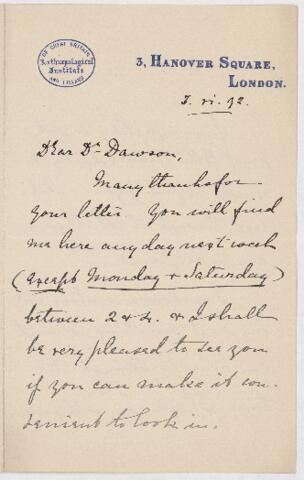 OF GREAT BRITAIN
Anthropological
Institute
AND IRELAND
3, HANOVER SQUARE,
LONDON.
3. vi. 92.
Dear Dr Dawson,
Many thanks for
your letter. You will find
me here any day next week
(except Monday & Saturday)
between 2 & 4. & I shall
be very pleased to see you
if you can make it con-
venient to look in.